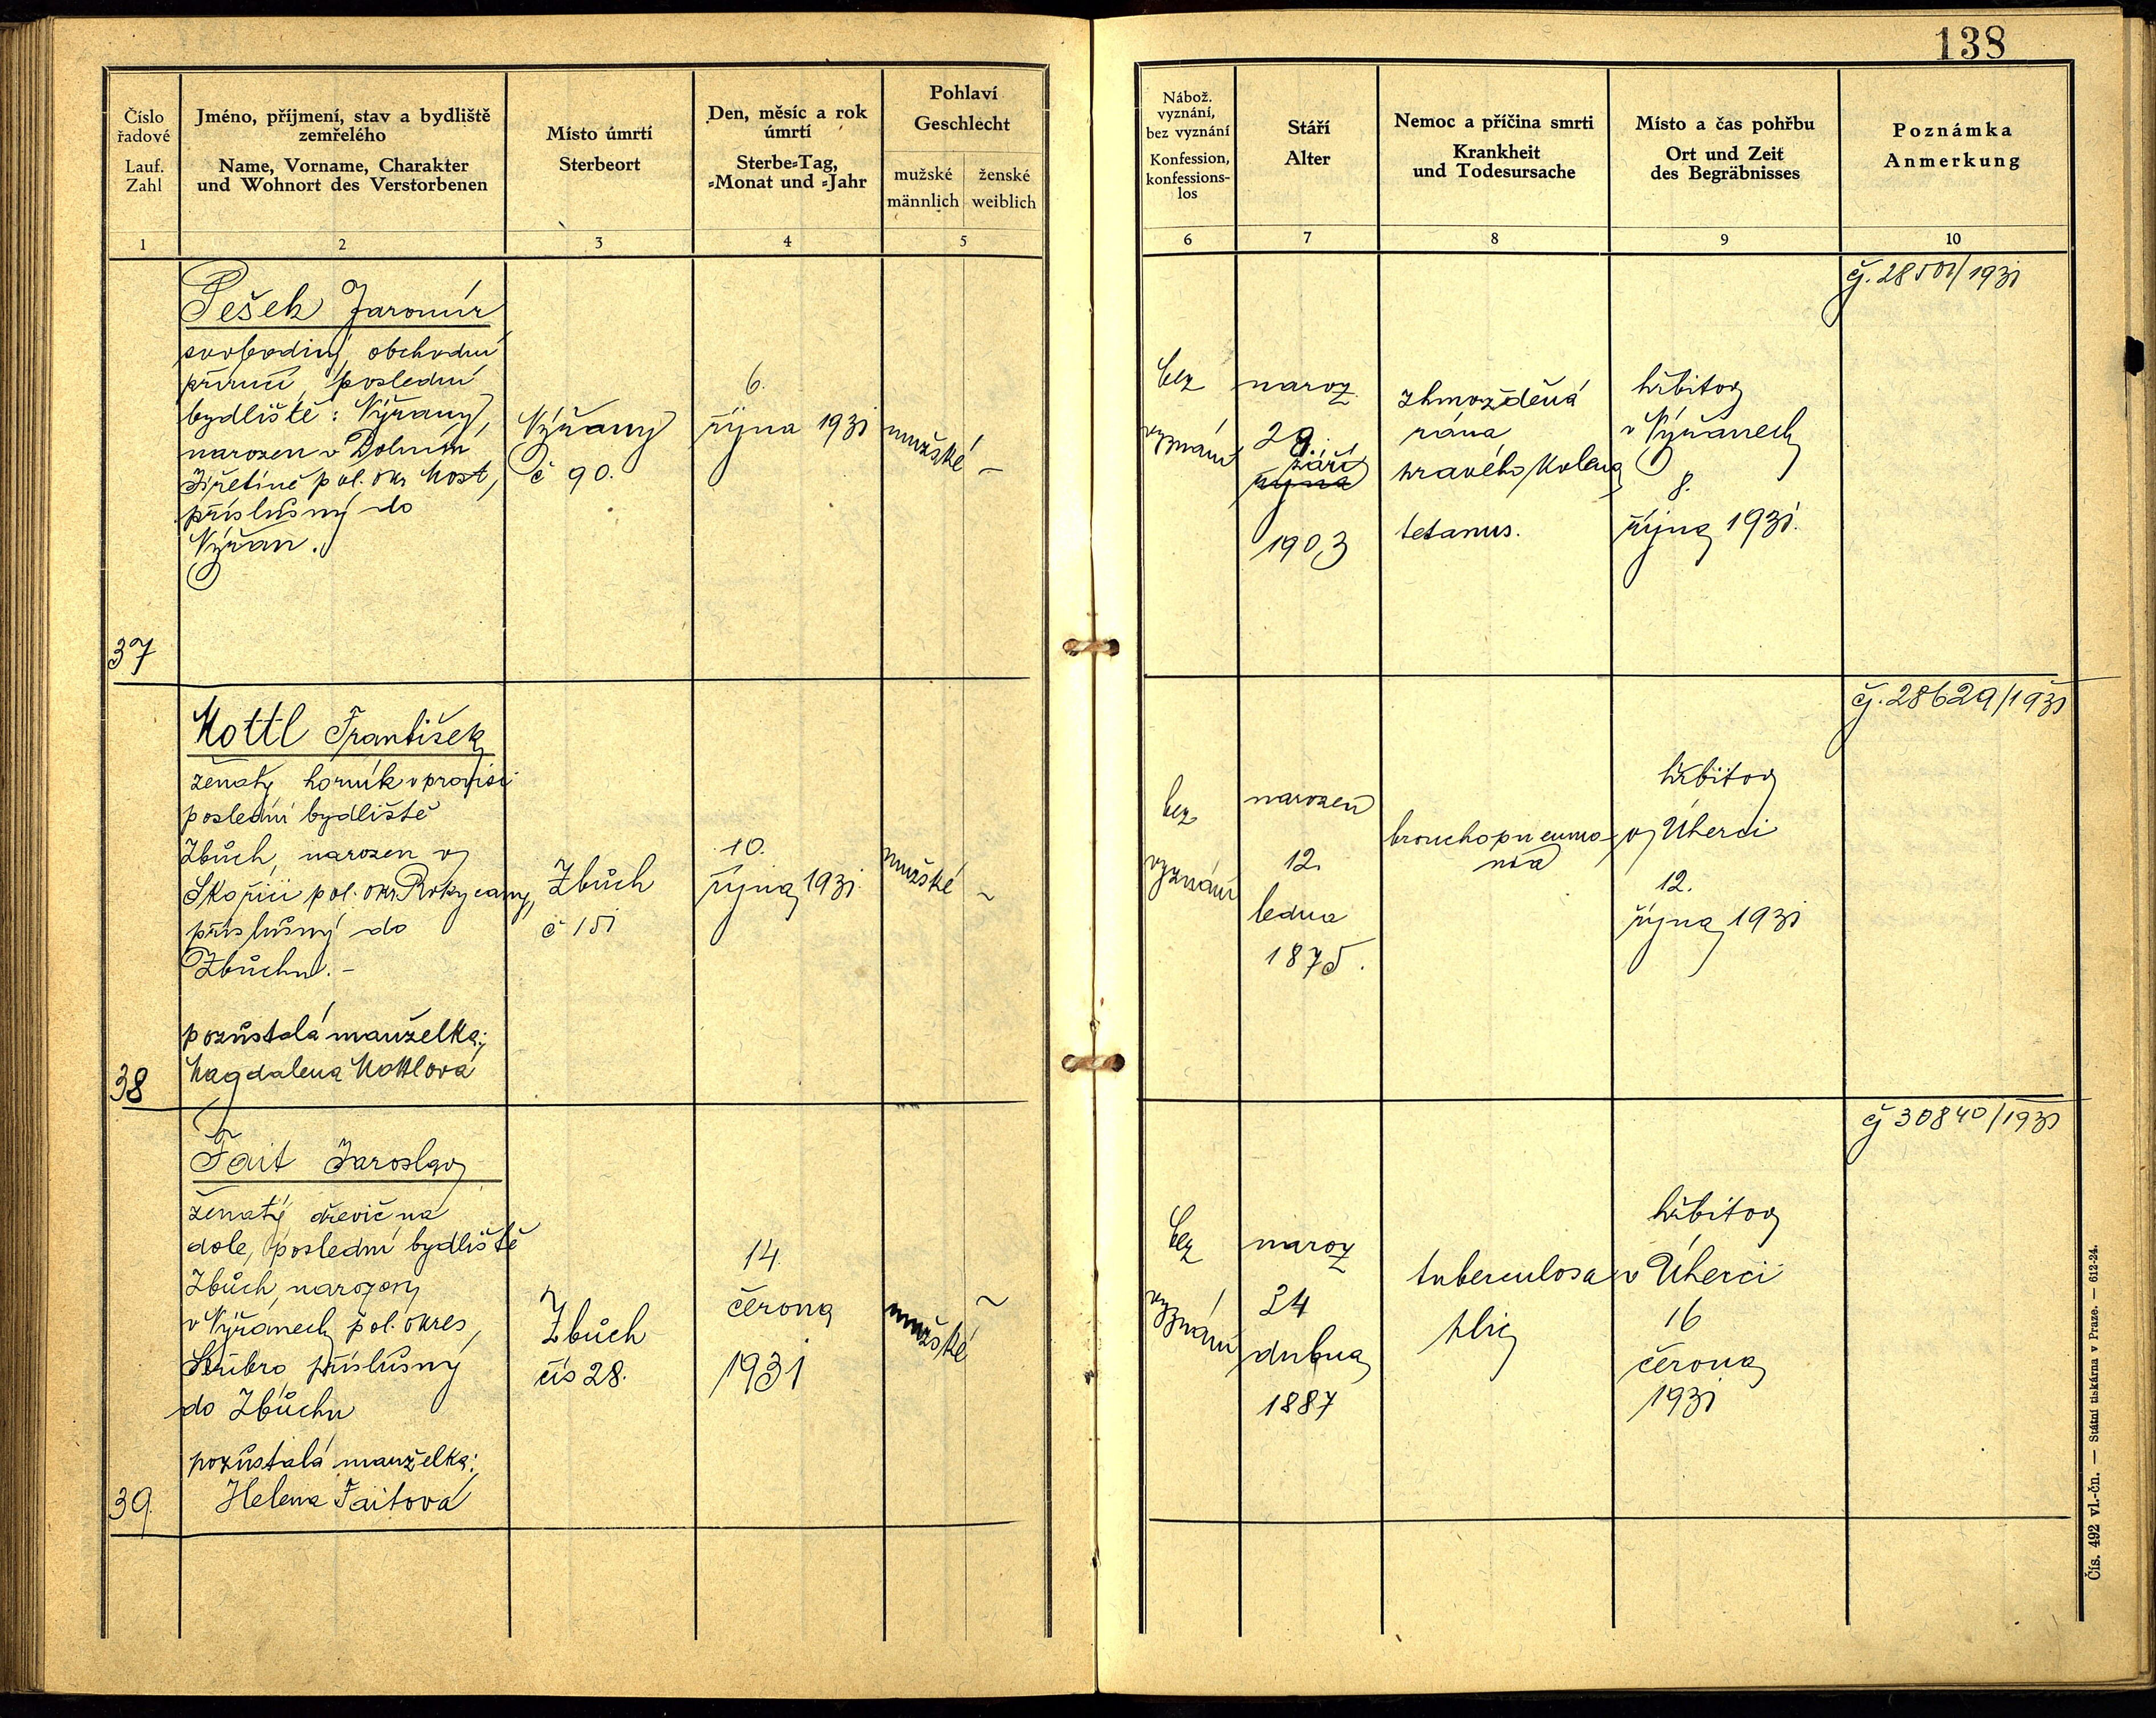 138
Číslo
řadové
Lauf.
Zahl
1
Jméno, příjmení, stav a bydliště
zemřelého
Name, Vorname, Charakter
und Wohnort des Verstorbenen
2
Místo úmrtí
Sterbeort
3
Den, měsíc a rok
úmrtí
Sterbe-Tag,
-Monat und -Jahr
4
Pohlaví
Geschlecht
mužské
männlich
ženské
weiblich
5
Nábož.
vyznání,
bez vyznání
Konfession,
konfessions-
los
6
Stáří
Alter
7
Nemoc a příčina smrti
Krankheit
und Todesursache
8
Místo a čas pohřbu
Ort und Zeit
des Begräbnisses
9
Poznámka
Anmerkung
10
37
Pešek Jaromír
svobodný, obchodní
příručí, poslední
bydliště: Nýřany,
narozen v Dolním
Jiřetíně pol. okr Most,
příslušný do
Nýřan.
Nýřany
č 90.
6.
října 1931
mužské
–
bez
vyznání
naroz
29.
září
října
1903
zhmožděná
rána
pravého kolena
tetanus.
hřbitov
v Nýřanech
8.
října 1931.
čj. 28501/1931
38
Kottl František
ženatý horník v provisi
poslední bydliště
Zbůch, narozen v
Skořici pol. okr Rokycany,
příslušný do
Zbůchu. –
pozůstalá manželka:
Magdalena Kottlová
Zbůch
č 151
10.
října 1931.
mužské
~
bez
vyznání
narozen
12.
ledna
1875.
bronchopneumo-
nia
hřbitov
v Úherci
12.
října 1931
čj. 28629/1931
39.
Fait Jaroslav
ženatý, dřevič na
dole, poslední bydliště
Zbůch, narozený
v Nýřanech pol. okres,
Stříbro, příslušný
do Zbůchu
pozůstalá manželka:
Helena Faitová
Zbůch
čís 28.
14.
června
1931
mužské
~
bez
vyznání
naroz
24
dubna
1887
tuberculosa
plic
hřbitov
v Úherci
16
června
1931
čj 30840/1931
Čís. 492 vl.-čn. — Státní tiskárna v Praze. — 612-24.